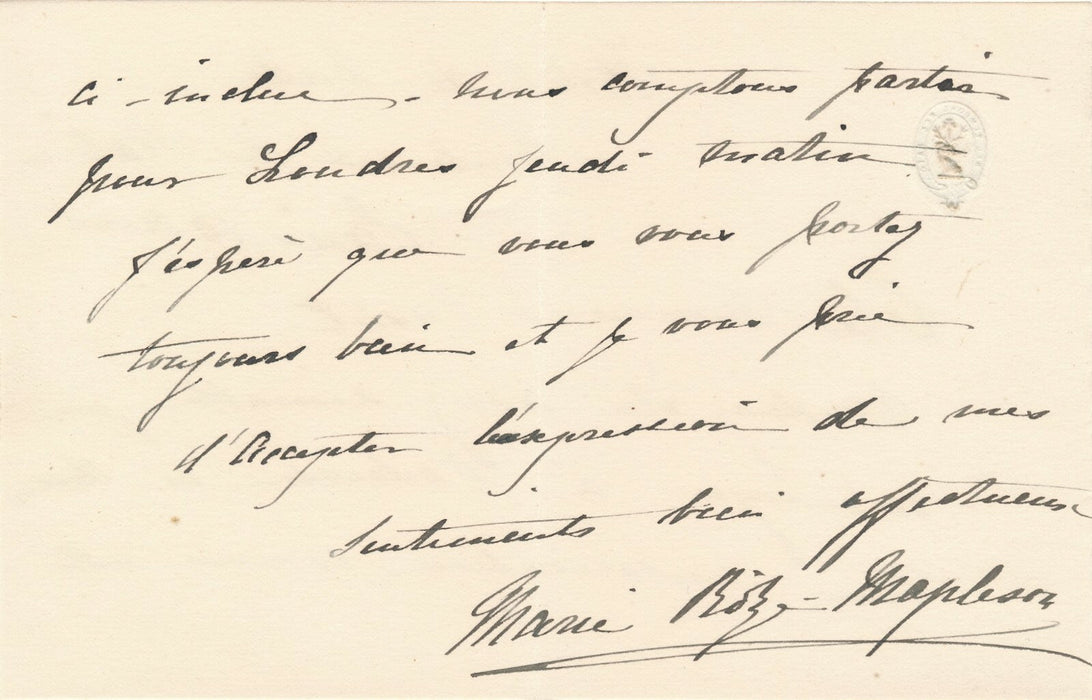 ci-inclue - nous comptons partir
pour Londres jeudi matin
J'espère que vous vous portez
toujours bien et je vous prie
d'accepter l'expression de mes
sentiments bien affectueux
Marie Rôze-Mapleson